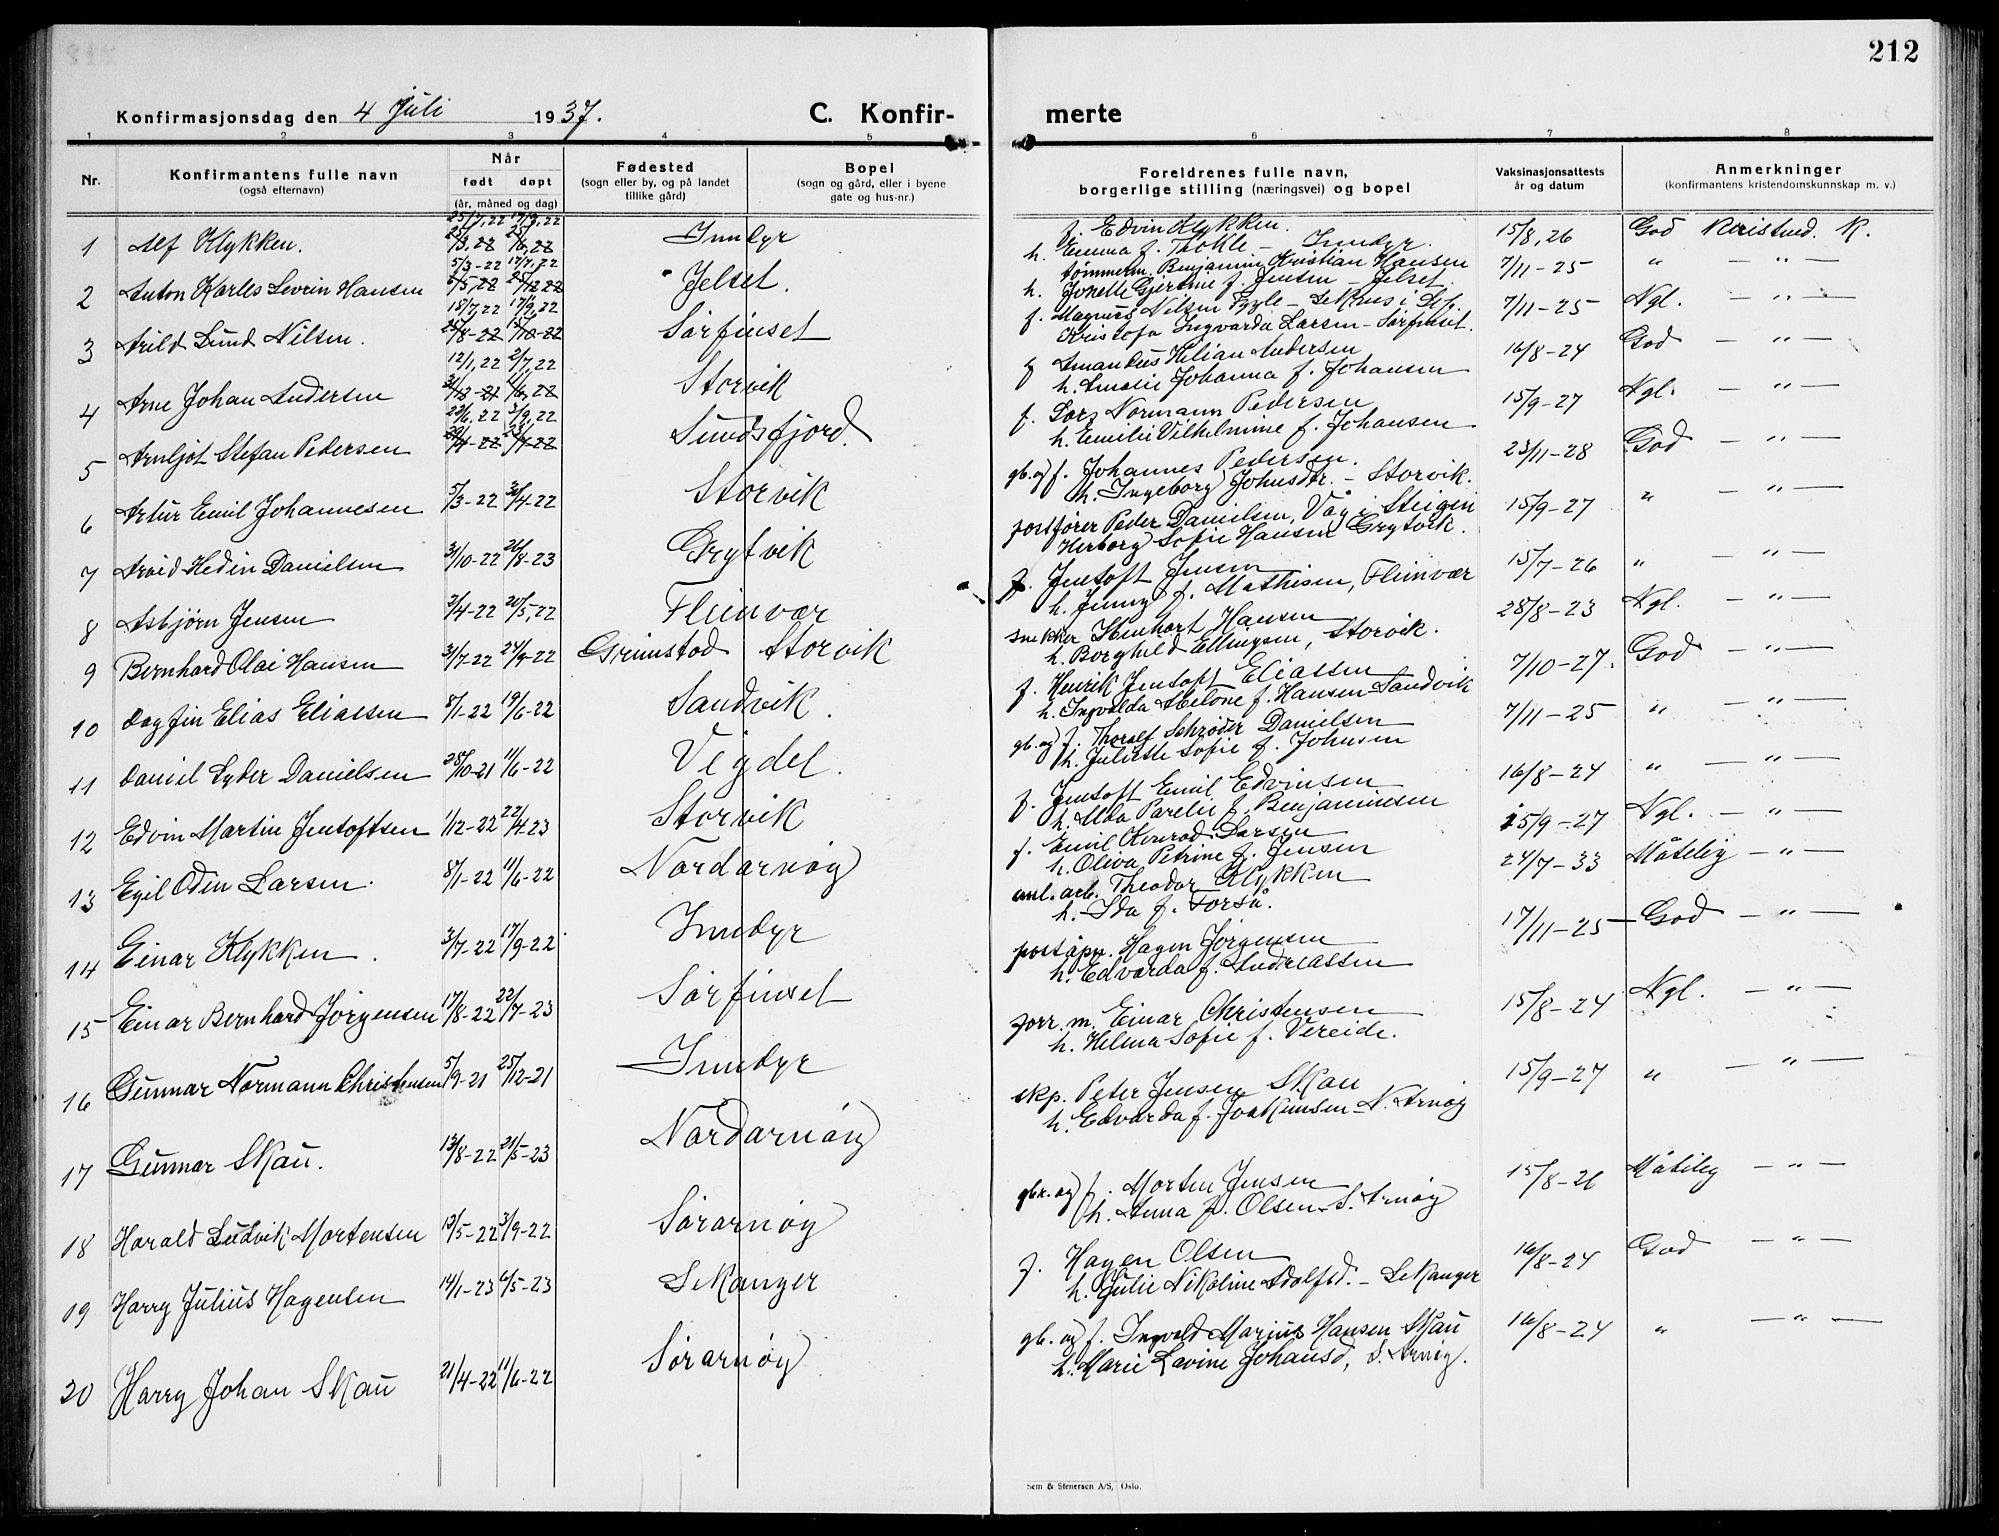 212
Konfirmasjonsdag den 4 Juli 1937. C. Konfir- merte
1 2 3 4 5 6 7 8
Nr. Konfirmantens fulle navn (også efternavn) Når født døpt (år, måned og dag) Fødested (sogn eller by, og på landet tillike gård) Bopel (sogn og gård, eller i byene gate og hus-nr.) Foreldrenes fulle navn, borgerlige stilling (næringsvei) og bopel Vaksinasjonsattests år og datum Anmerkninger (konfirmantens kristendomskunnskap m. v.)
1 Alf Klykken. 25/7,22 17/9,22 Inndyr f. Edvin Klykken. 15/8,26 God Kristend. K.
h. Emma f. Tokle - Inndyr.
2 Anton Karles Sevrin Hansen 5/3-22 17/7,22 Jelset. tømmerm. Benjamin Kristian Hansen 7/11-25 " — " —
h. Jonette Gjertine f. Jensen - Jelset.
3 Arild Lund Nilsen. 18/7,22 17/9,22 Sørfinset f. Magnus Nilsen Tygle - Sekkus i Lof. 7/11-25 Ngl. — " —
Kristofa Ingvarda Larsen - Sørfinset.
4 Arne Johan Andersen 12/1,22 2/7,22 Storvik f Amandus Kilian Andersen 16/8-24 God — " —
h. Amalie Johanna f. Johansen
5 Arnljot Stefan Pedersen 23/6,22 3/9,22 Sundsfjord. f. Lars Normann Pedersen 15/9-27 Ngl. — " —
h. Emilie Vilhelmine f. Johansen
6 Artur Emil Johannesen 5/3-22 30/4-22 Storvik gb. og f. Johannes Pedersen. 23/11-28 God — " —
h. Ingeborg Johnsdtr. - Storvik.
7 Arvid Hedin Danielsen 31/10-22 26/8-23 Grytvik postfører Peder Danielsen, Våg i Steigen 15/9-27 " — " —
Herborg Sofie Hansen Grytvik.
8 Asbjørn Jensen 2/4-22 20/5,22 Fleinvær f. Jentoft Jensen 15/7-26 " — " —
h. Jenny f. Mathisen, Fleinvær
9 Bernhard Olai Hansen 31/7-22 24/9-22 Grimstad Storvik snekker Henhart Hansen 28/8-23 Ngl. — " —
h. Borghild Ellingsen, Storvik.
10 Dagfin Elias Eliassen 8/1-22 19/6-22 Sandvik. f. Henrik Jentoft Eliassen 7/10-27. God — " —
h. Ingvalda Helone f. Hansen - Sandvik
11 Daniel Lyder Danielsen 28/10-21 11/6-22 Vigdel. gb. og f. Thoralf Schrøder Danielsen 7/11-25 " — " —
h. Juliette Sofie f. Johnsen
12 Edvin Martin Jentoftsen 1/12-22 22/4-23 Storvik f. Jentoft Emil Edvinsen 16/8-24 " — " —
h. Alda Parelie f. Benjaminsen
13 Egil Odin Larsen. 8/1-22 11/6-22 Nordarnøy f. Emil Konrad Larsen 15/9-27 Ngl. — " —
h. Oliva Petrine f. Jensen
14 Einar Klykken. 3/7-22 17/9-22 Inndyr anl. arb. Theodor Klykken 24/7-33 Måtelig — " —
h. Ida f. Forså.
15 Einar Bernhard Jørgensen 17/8-22 22/7-23 Sørfinset poståpn. Hagen Jørgensen 17/11-25 God — " —
h. Edvarda f. Andreassen
16 Gunnar Normann Christensen 5/9-21 25/12-21 Inndyr forr. m. Einar Christensen 15/8-24 Ngl. — " —
h. Helma Sofie f. Vereide.
17 Gunnar Skau. 13/8-22 21/5-23 Nordarnøy skp. Peter Jensen Skau 15/9-27 " — " —
h. Edvarda f. Joakimsen - N. Arnøy
18 Harald Ludvik Mortensen 13/5-22 3/9-22 Sørarnøy gbr. og f. Morten Jensen 15/8-26 Måtelig — " —
h. Anna f. Olsen - S. Arnøy
19 Harry Julius Hagensen 14/1-23 6/5-23 Sekanger f. Hagen Olsen 16/8-24 God — " —
h. Julie Nikoline Adolfsd. - Sekanger
20 Harry Johan Skau 21/4-22 11/6-22 Sørarnøy gb. og f. Ingvald Marius Hansen Skau 16/8-24 " — " —
h. Marie Lavine Johansd, S. Arnøy.
Sem & Stenersen A/S, Oslo.